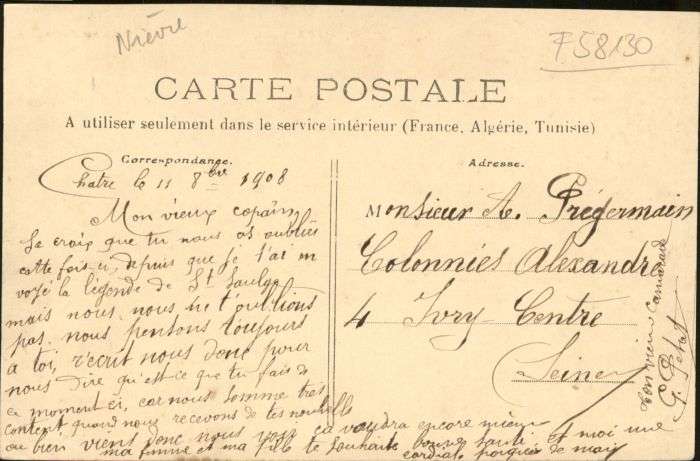 Nièvre
F58130
CARTE POSTALE
A utiliser seulement dans le service intérieur (France, Algérie, Tunisie)
Correspondance.
Chatre le 11 8bre 1908
Mon vieux copain
Je crois que tu nous as oubliés
cette fois ci, depuis que je t'ai en
voyé la légende de St Saulge
mais nous, nous ne t'oublions
pas, nous pensons toujours
a toi, r'ecrit nous donc pour
nous dire qu'est-ce que tu fais de
ce moment ci, car nous somme tres
content quand nous recevons de tes nouvelle
ou bien viens donc nous voir ca vaudra encore mieux
ma femme et ma fille te souhaite bonne santé et moi une
cordiale poignée de main
Adresse.
Monsieur A. Prégermain
Colonnies Alexandre
4 Ivry-Centre
Seine
ton vieux camarade
G. Petot